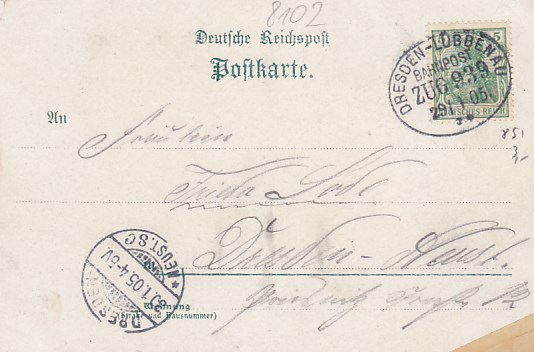 8102
Deutsche Reichspost
Postkarte.
DRESDEN-LÜBBENAU
BAHNPOST
ZUG 939
29 1 05.
DEUTSCHES REICH
5
An
Fräulein
Frieda
Dresden-Neust.
Prießnitz Straße 12
DRESDEN
NEUST. 8 C
1.05.4-5V.
Wohnung
(Straße und Hausnummer)